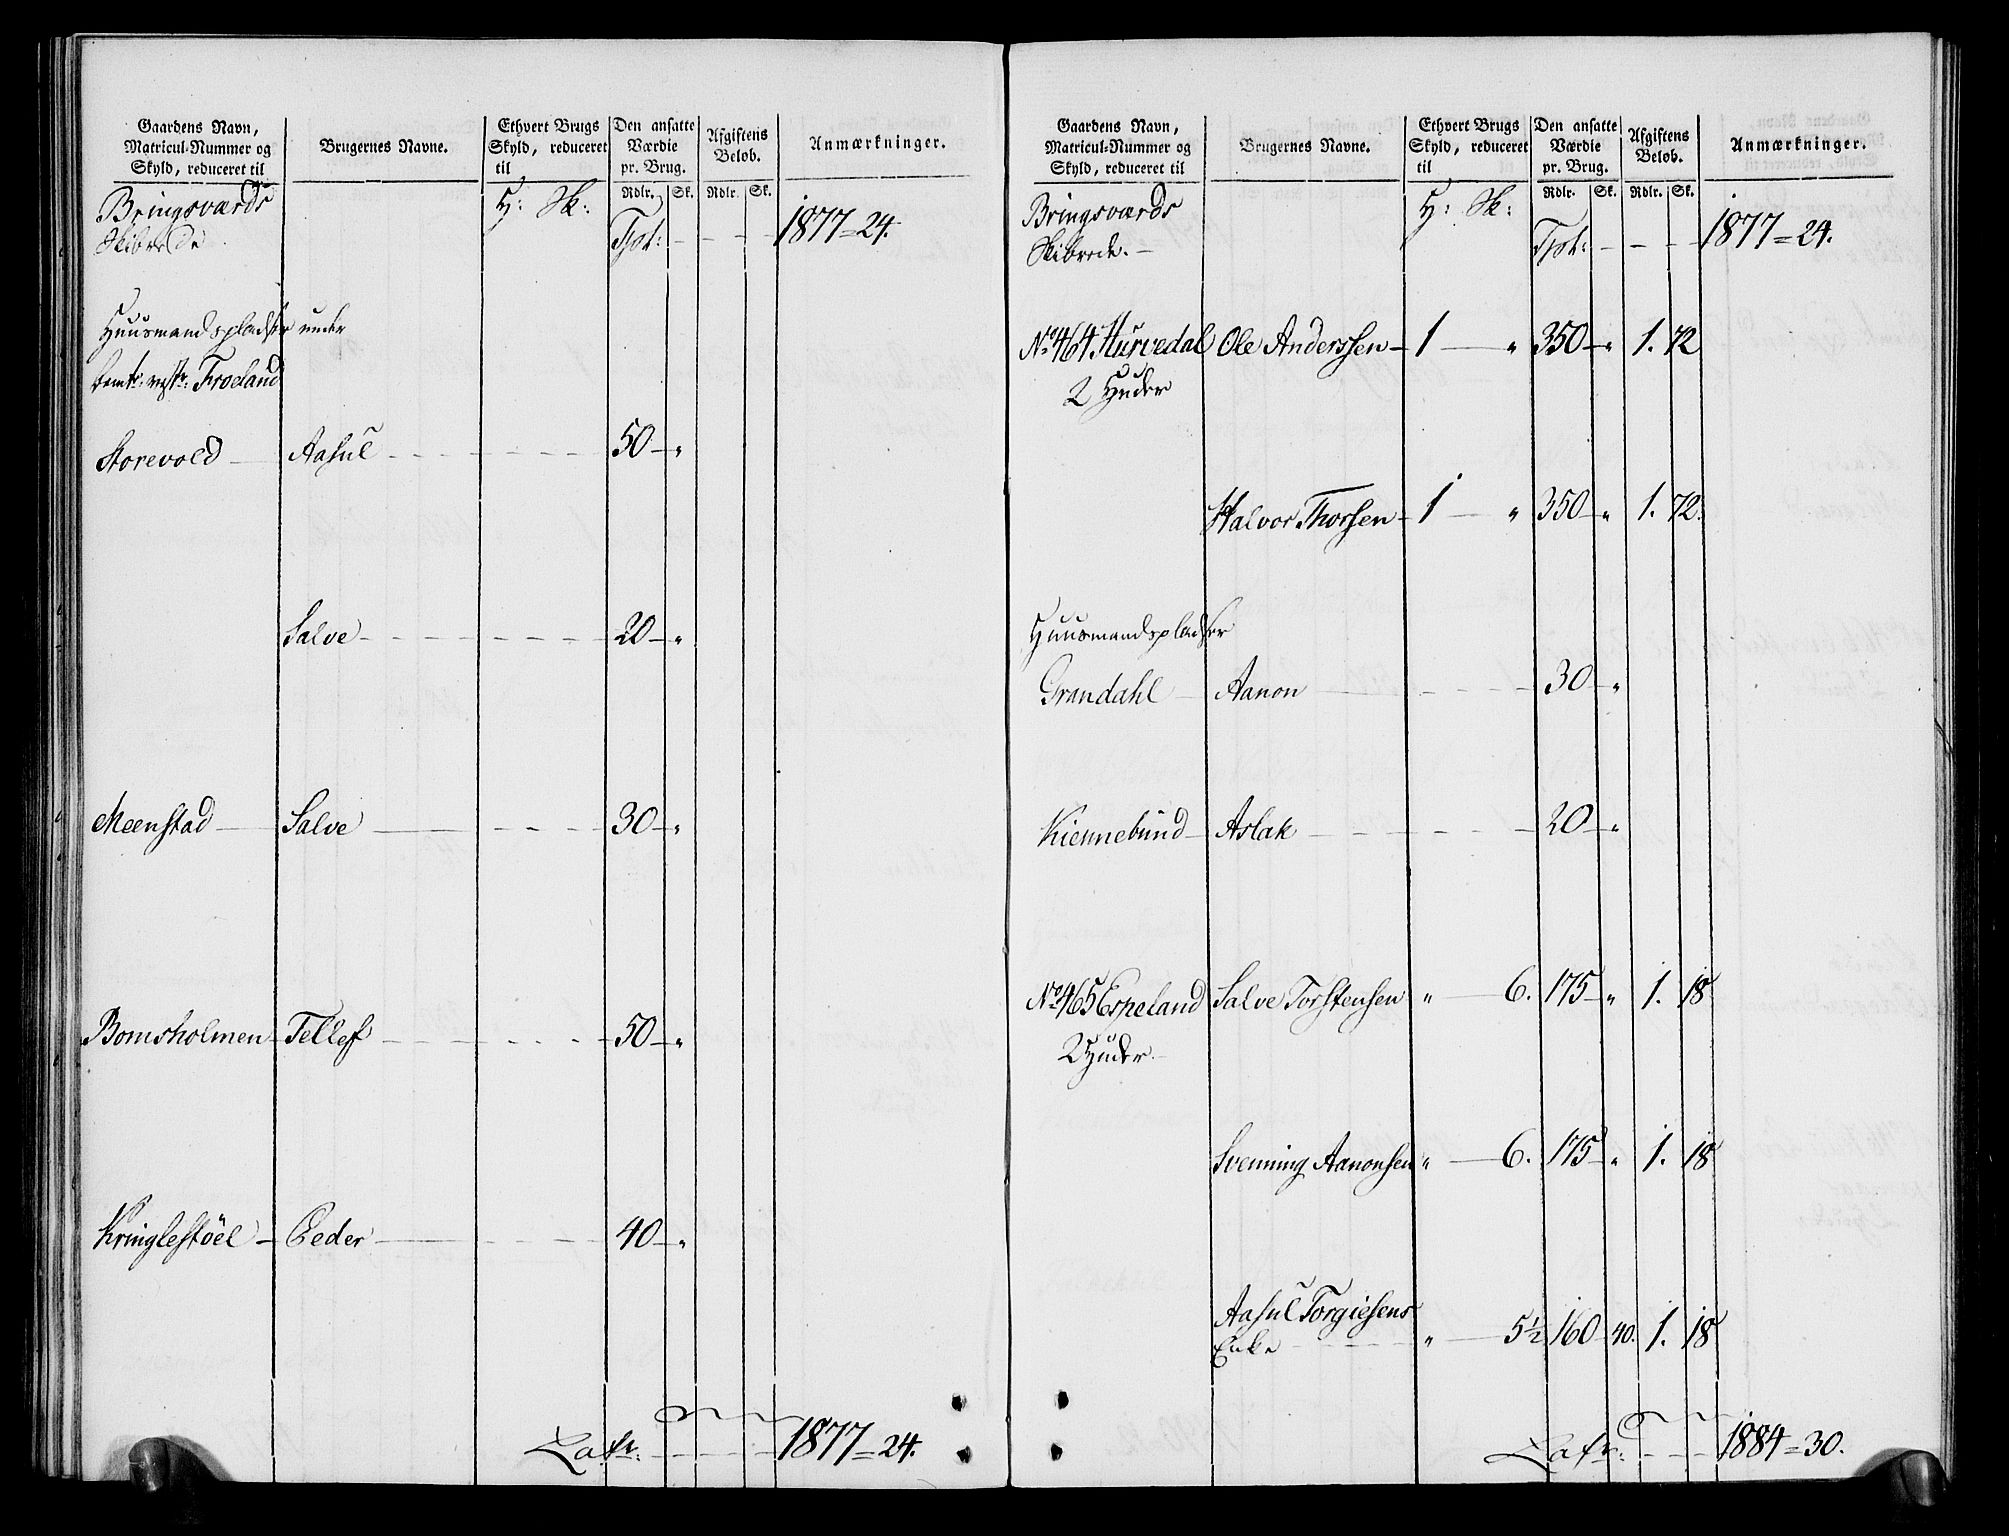 Gaardens Navn, Matricul-Nummer og Skyld, reduceret til
Brugernes Navne.
Ethvert Brugs Skyld, reduceret til
Den ansatte Værdie pr. Brug.
Afgiftens Beløb.
Anmærkninger.
Rdlr. Sk. Rdlr. Sk.
Bringsværds H: Sk:
Skibrede Tpt: - - - 1877 = 24.
Huusmandspladser under
bemte: vestr: Froeland
Storevold Aasul - - - 50 - "
Salve - - - 20 - "
Meenstad Salve - - - 30 - "
Bomsholmen Tellef - - - 50 - "
Kringlestöel Peder - - - 40 - "
Latr: - - - 1877 = 24.
Gaardens Navn, Matricul-Nummer og Skyld, reduceret til
Brugernes Navne.
Ethvert Brugs Skyld, reduceret til
Den ansatte Værdie pr. Brug.
Afgiftens Beløb.
Anmærkninger.
Rdlr. Sk. Rdlr. Sk.
Bringsværds H: Sk:
Skibrede. Tpt: - - - 1877 = 24.
No 464 Hurvedal Ole Anderssen 1 - " 350 - " 1. 72
2 Huder
Halvor Thorsen 1 - " 350 - " 1. 72.
Huusmandspladser
Grandahl Aanon - - - 30 - "
Kiennebund Aslak - - - 20 - "
No 465 Espeland Salve Torstensen " - 6. 175 - " 1. 18
2 Huder.
Svenning Aanonsen " - 6. 175 - " 1. 18
Aasul Torgiesens
Enke " - 5½ 160 - 40. 1. 18
Latr: - - - 1884 = 30.